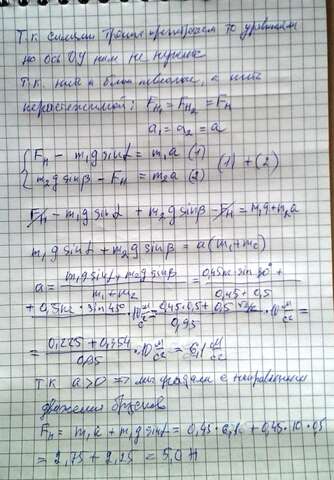 Т.к. силами трения пренебрегаем то уравнения
на ось OY нам не нужно
Т.к. нить и блок невесомые, а нить
нерастяжимой: Fн₁ = Fн₂ = Fн
a₁ = a₂ = a
{ Fн - m₁g sinα = m₁a (1)
m₂g sinβ - Fн = m₂a (2) (1) + (2)
Fн - m₁g sinα + m₂g sinβ - Fн = m₁a + m₂a
m₁g sinα + m₂g sinβ = a(m₁+m₂)
a = (m₁g sinα + m₂g sinβ)/(m₁+m₂) = (0,45кг · sin 30° +
+ 0,5кг · sin 45°)/(0,45 + 0,5) · 10 м/с² = (0,45·0,5 + 0,5 · √2/2)/0,95 · 10 м/с² =
= (0,225 + 0,354)/0,95 · 10 м/с² = 6,1 м/с²
Т.К a>0 => мы угадали с направлением
движения брусков
Fн = m₁a + m₁g sinα = 0,45 · 6,1 + 0,45 · 10 · 0,5
= 2,75 + 2,25 = 5,0 Н